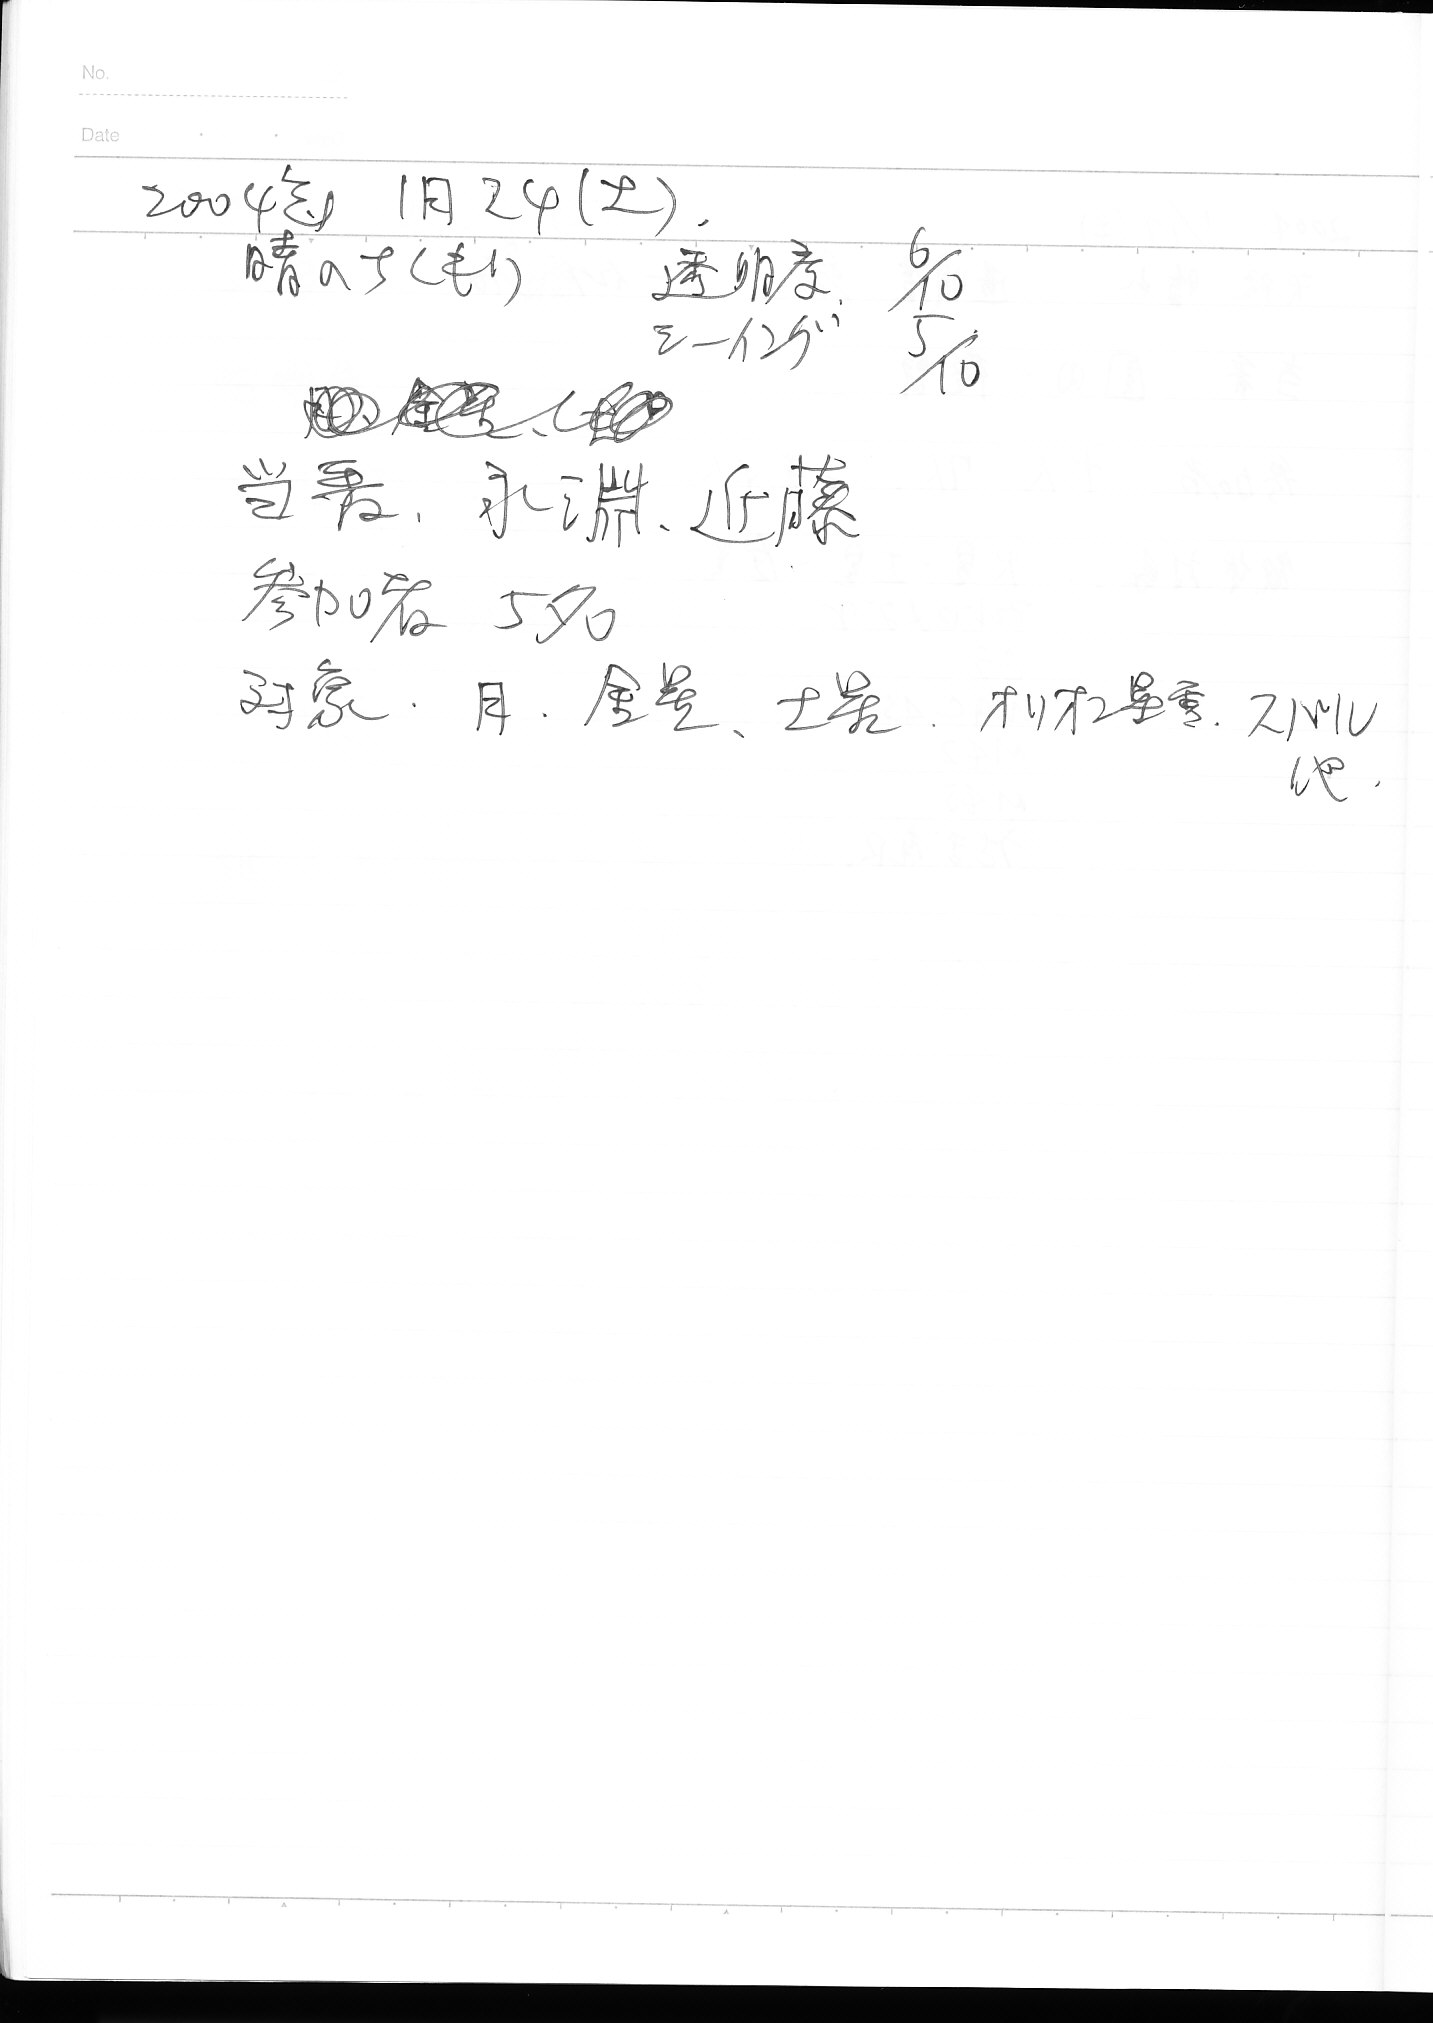 No.
Date
2004年 1月24(土).
晴のちくもり 透明度. 6/10
シーイング 5/10
当番. 永淵、近藤
参加者 5名
対象. 月. 金星、土星. オリオン星雲. スバル
他.